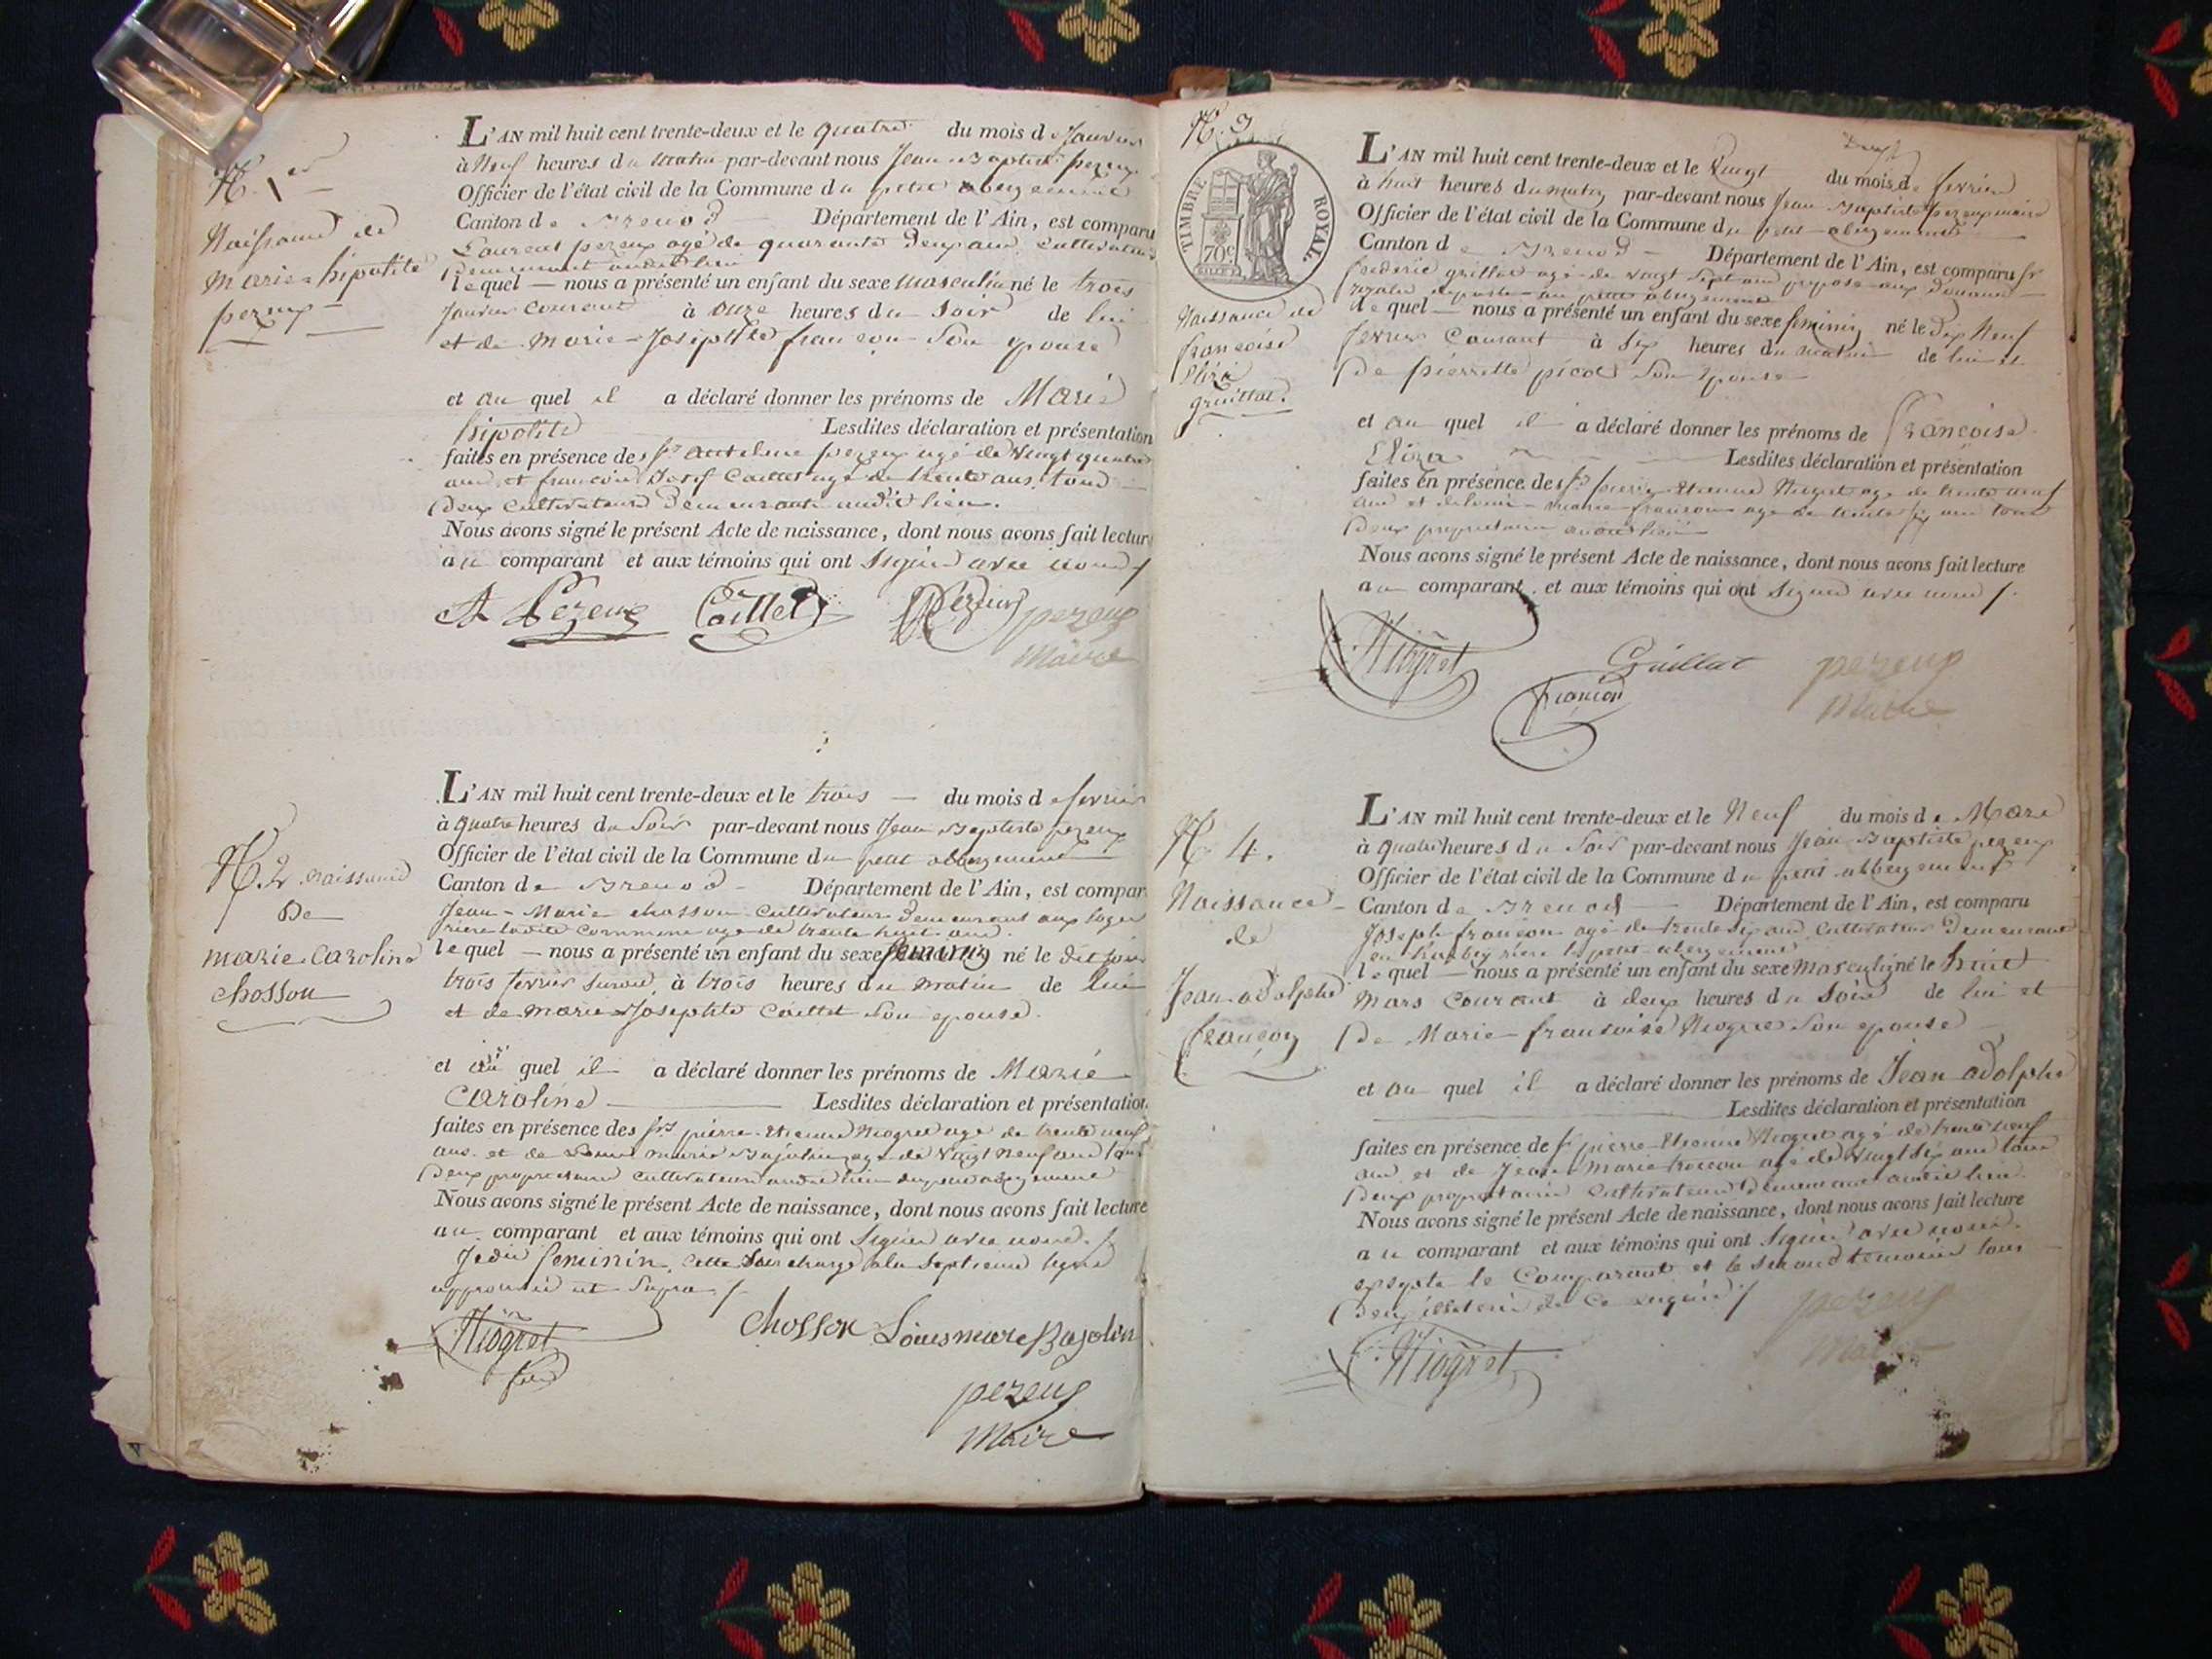 N. 1er
Naissance de
marie hipolite
pezeux
L'AN mil huit cent trente-deux et le quatre du mois de Janvier
à Neuf heures du matin par-devant nous Jean Baptiste pezeux
Officier de l'état civil de la Commune du petit abergement
Canton de Brenod Département de l'Ain, est comparu
Laurent pezeux agé de quarante deux ans Cultivateur
Demeurant audit lieu
lequel — nous a présenté un enfant du sexe masculin né le trois
Janvier Courant à onze heures du Soir de lui
et de Marie Josephte françon Son epouse
et au quel il a déclaré donner les prénoms de Marie
hipolite Lesdites déclaration et présentation
faites en présence des Srs antelme pezeux agé de Vingt quatre
ans et françois Josef Caillet agé de trente ans tous
Deux Cultivateurs Demeurant audit lieu.
Nous avons signé le présent Acte de naissance, dont nous avons fait lecture
au comparant et aux témoins qui ont Signé avec nous /
A Pezeux Caillet Pezeux pezeux
Maire
N. 2 naissance
De
marie Caroline
chosson
L'AN mil huit cent trente-deux et le trois — du mois de fevrier
à quatre heures du Soir par-devant nous Jean Baptiste pezeux
Officier de l'état civil de la Commune du petit abbergement
Canton de Brenod Département de l'Ain, est compar
Jean-Marie chosson Cultivateur Demeurant aux
riere ladite Commune agé de trente huit ans.
lequel — nous a présenté un enfant du sexe feminin né le dit jour
trois fevrier à trois heures du matin de lui
et de marie Josephte Caillet Son epouse.
et au quel il a déclaré donner les prénoms de Marie
Caroline — Lesdites déclaration et présentation
faites en présence des Srs pierre Etienne Niogret agé de trente neuf
ans et de Louis marie Bajolin agé de Vingt neuf ans tous
Deux proprietaires Cultivateurs audit lieu du petit abergement
Nous avons signé le présent Acte de naissance, dont nous avons fait lecture
au comparant et aux témoins qui ont Signé avec nous. /
Je dis feminin, Cette Surcharge a la Septieme ligne
approuvée ut Supra /
Niogret chosson Louis marie Bajolin
pezeux
Maire
N. 3
TIMBRE ROYAL
70c
Naissance de
françoise
Eliza
grillat.
L'AN mil huit cent trente-deux et le Vingt du mois de fevrier
à huit heures du matin par-devant nous Jean Baptiste pezeux maire
Officier de l'état civil de la Commune du petit abergement
Canton de Brenod — Département de l'Ain, est comparu Sr
frederic grillat agé de Vingt Sept ans préposé aux Douanes
au petit abergement
le quel — nous a présenté un enfant du sexe feminin né le Dix Neuf
fevrier Courant à Six heures du matin de lui et
De pierrette picod Son epouse
et au quel il a déclaré donner les prénoms de françoise
Eliza — Lesdites déclaration et présentation
faites en présence des Srs pierre Etienne Niogret agé de trente neuf
ans et de Louis marie françon agé de trente Six ans tous
Deux proprietaires audit lieu
Nous avons signé le présent Acte de naissance, dont nous avons fait lecture
au comparant et aux témoins qui ont Signé avec nous /.
Niogret Grillat pezeux
françon Maire
N. 4.
Naissance
de
Jean adolphe
françon
L'AN mil huit cent trente-deux et le Neuf du mois de Mars
à quatre heures du Soir par-devant nous Jean Baptiste pezeux
Officier de l'état civil de la Commune du petit abbergement
Canton de Brenod — Département de l'Ain, est comparu
Joseph françon agé de trente Six ans Cultivateur Demeurant
riere le petit abergement
lequel — nous a présenté un enfant du sexe masculin né le huit
Mars Courant à deux heures du Soir de lui et
De Marie françoise Niogret Son epouse
et au quel il a déclaré donner les prénoms de Jean adolphe
Lesdites déclaration et présentation
faites en présence de Sr pierre Etienne Niogret agé de trente neuf
ans et de Jean Marie françon agé de Vingt Six ans tous
Deux proprietaires Cultivateurs Demeurant audit lieu.
Nous avons signé le présent Acte de naissance, dont nous avons fait lecture
au comparant et aux témoins qui ont Signé avec nous.
excepté le Comparant et le Second temoins tous
Deux illeterés de Ce requis /
pezeux
Maire
Niogret